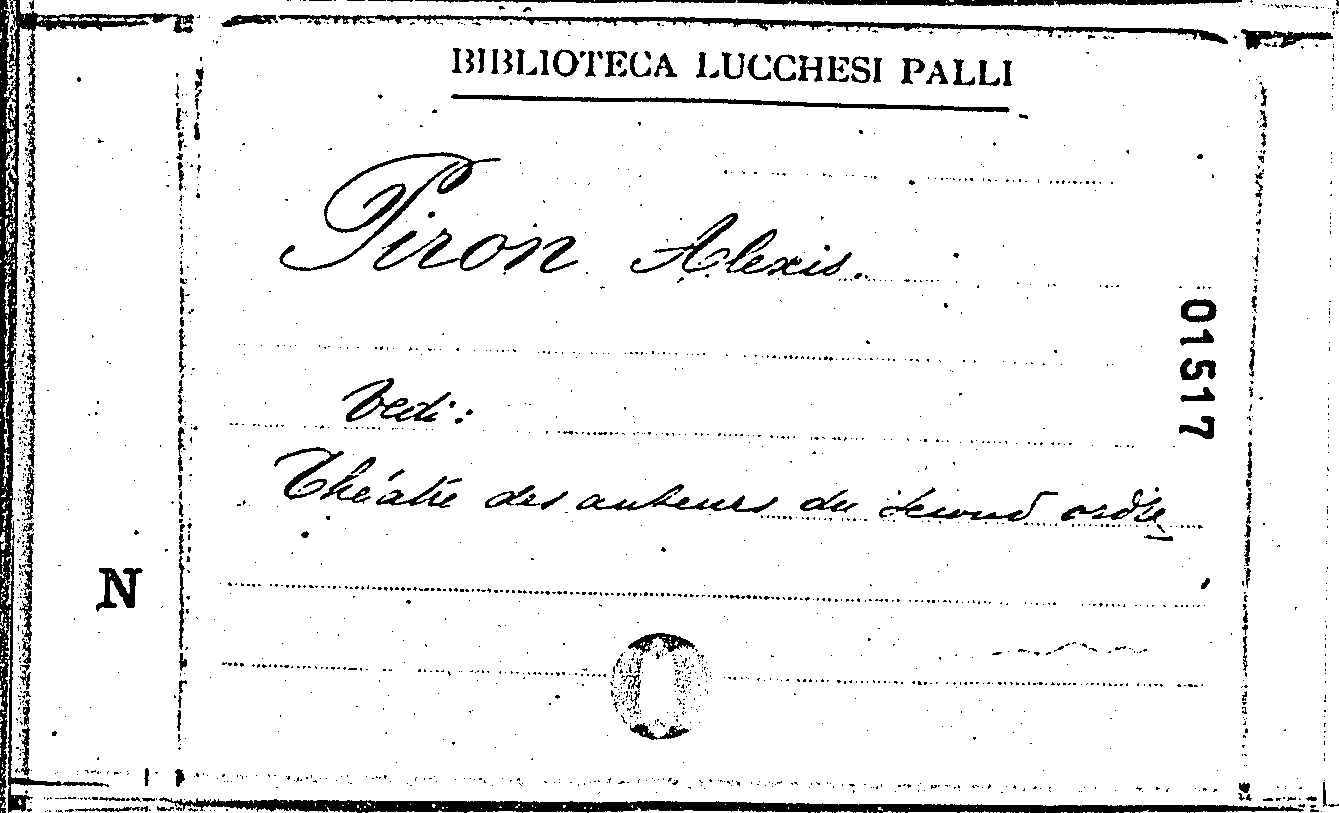 BIBLIOTECA LUCCHESI PALLI
Piron Alexis.
01517
Vedi:
Théatre des auteurs du second ordre
N